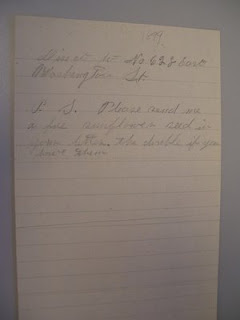 Direct to No. 628 East
Washington St.
P. S. Please send me
a few sunflower seed in
your letter, the double if you
have them